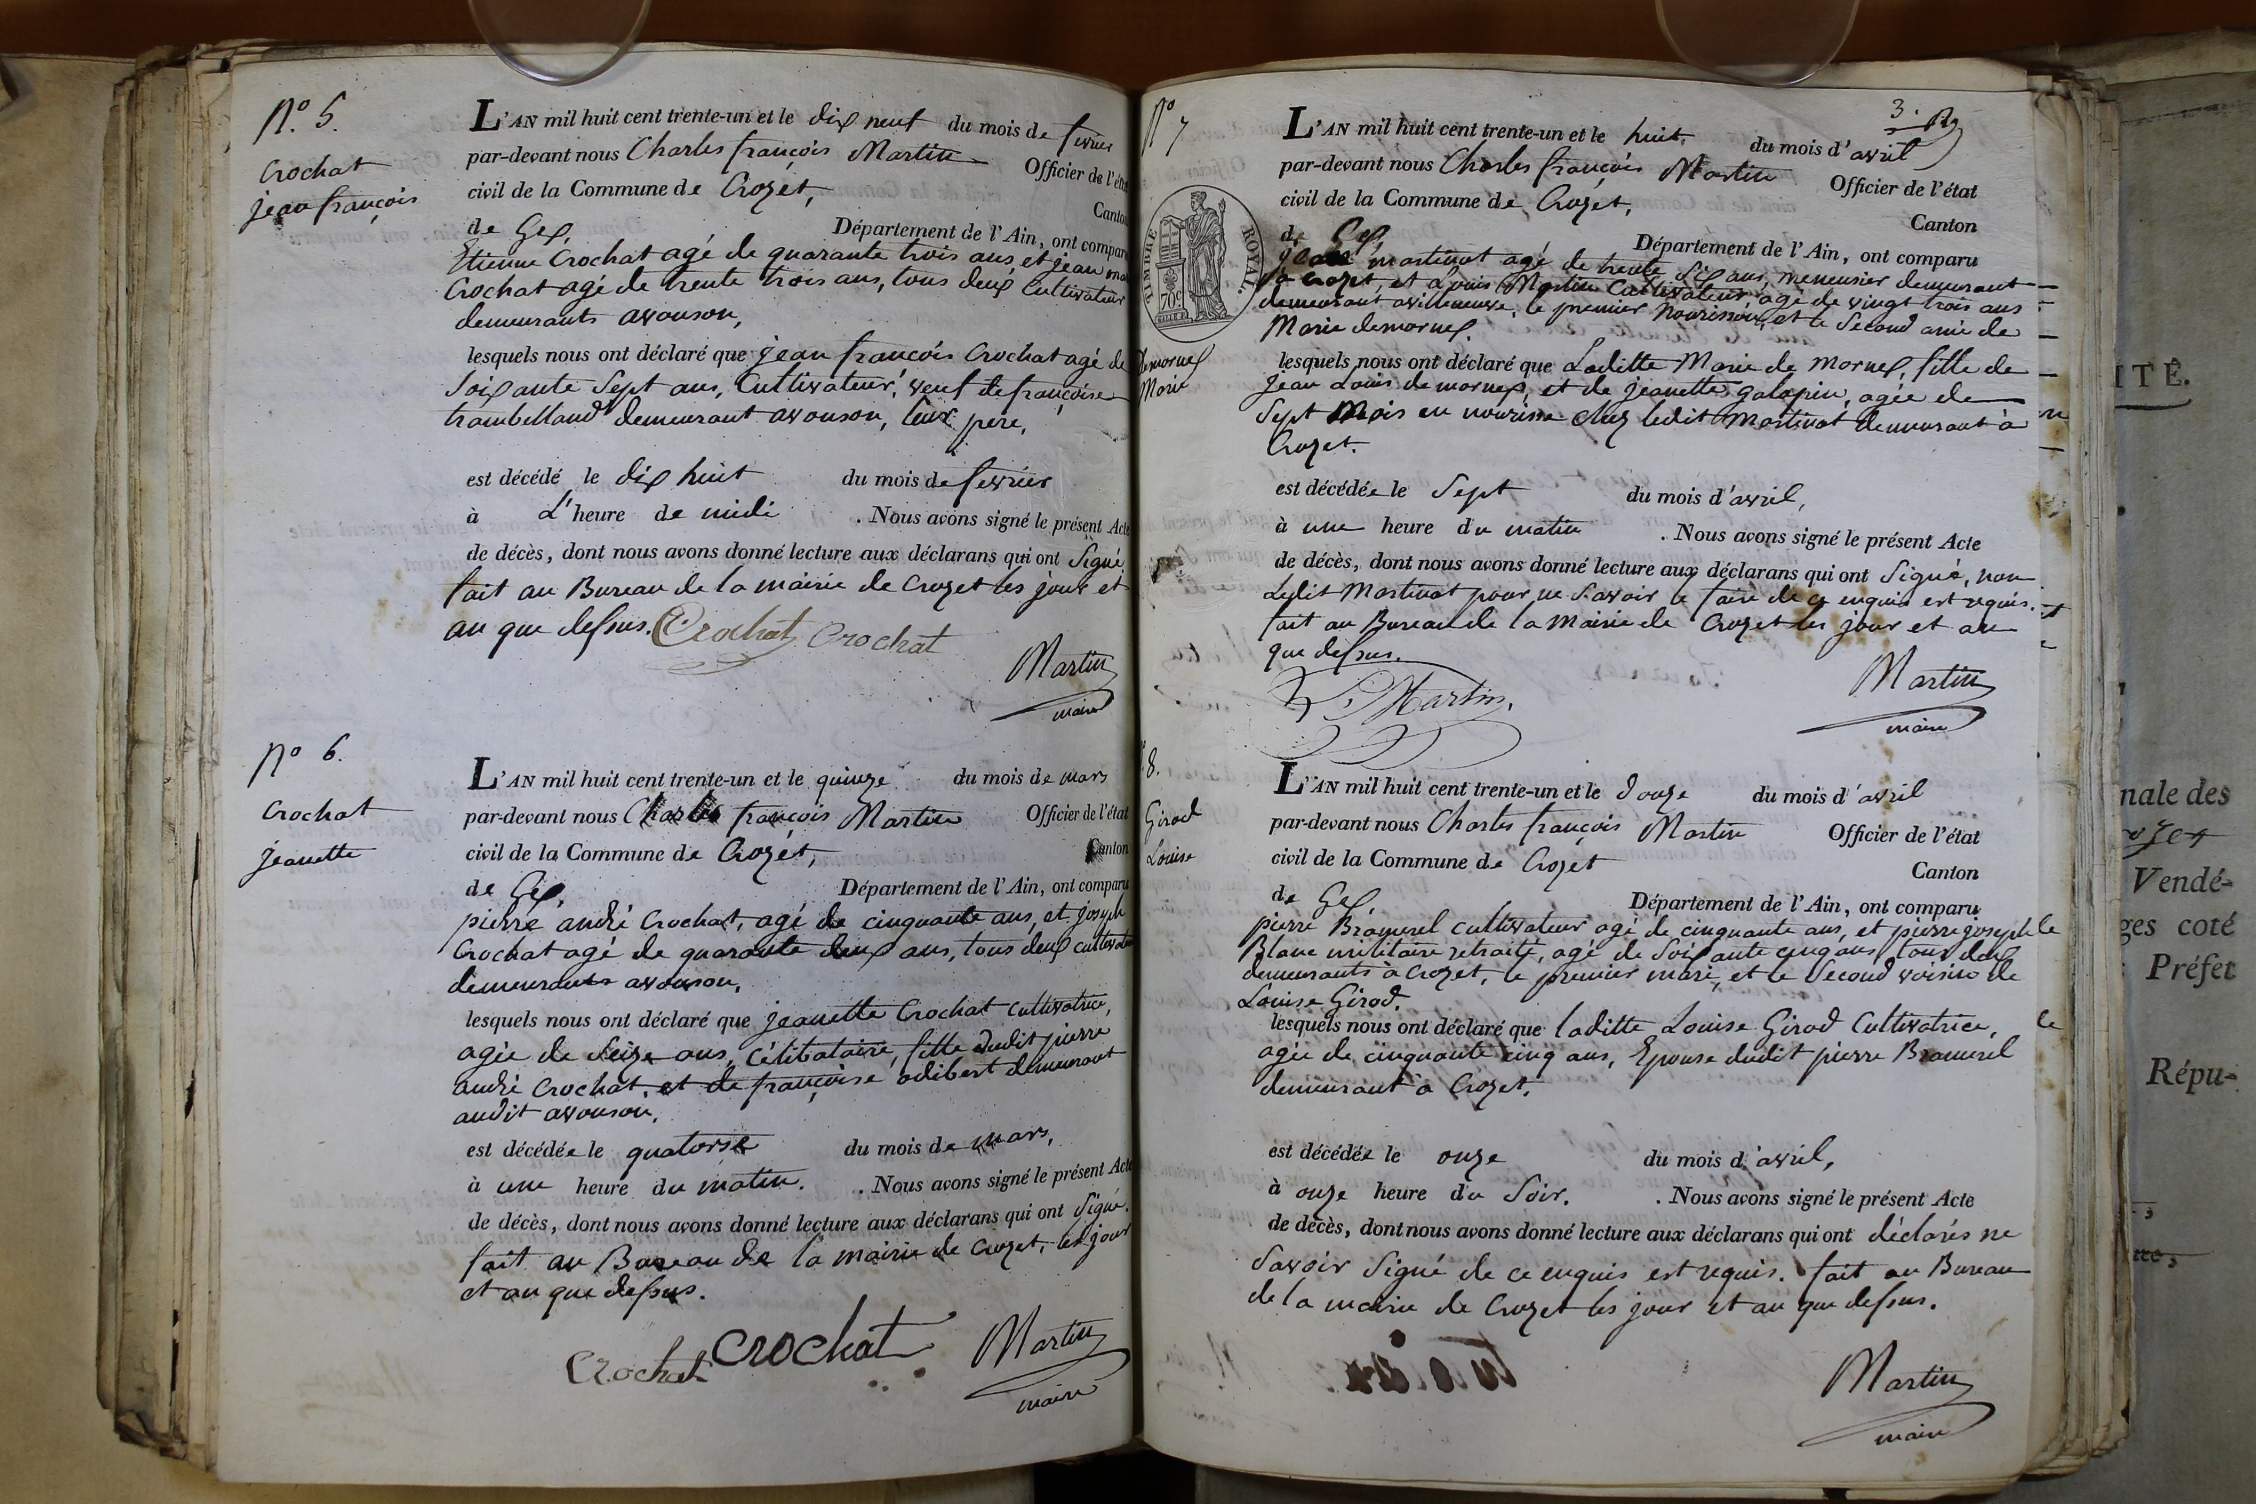 N.º 5.
Crochat
jean françois
L'AN mil huit cent trente-un et le dix neuf du mois de fevrier
par-devant nous Charles françois Martin Officier de l'état
civil de la Commune de Crozet, Canton
de Gex, Département de l'Ain, ont comparu
Etienne Crochat agé de quarante trois ans, et jean
Crochat agé de trente trois ans, tous deux cultivateur
demeurants avouson,
lesquels nous ont déclaré que jean françois Crochat agé de
Soixante Sept ans, Cultivateur, veuf de françoise
demeurant avouson, leur père,
est décédé le dix huit du mois de fevrier
à L'heure de midi . Nous avons signé le présent Acte
de décès, dont nous avons donné lecture aux déclarans qui ont Signé,
fait au Bureau de la mairie de Crozet les jour et
an que dessus. Crochat Crochat
Martin
maire
Nº 6.
Crochat
Jeanette
L'AN mil huit cent trente-un et le quinze du mois de mars
par-devant nous Charles françois Martin Officier de l'état
civil de la Commune de Crozet, Canton
de Gex, Département de l'Ain, ont comparu
pierre andré Crochat, agé de cinquante ans, et joseph
Crochat agé de quarante deux ans, tous deux cultivateur
demeurants avouson,
lesquels nous ont déclaré que jeanette Crochat cultivatrice,
agée de Seize ans, Célibataire, fille dudit pierre
andré Crochat, et de françoise odibert demeurant
audit avouson,
est décédée le quatorse du mois de mars,
à une heure du matin. . Nous avons signé le présent Acte
de décès, dont nous avons donné lecture aux déclarans qui ont Signé.
fait au Bureau de la mairie de Crozet, les jour
et an que dessus.
Crochat Crochat Martin
maire
Nº 7
3.
TIMBRE ROYAL.
70c
demornex
Marie
L'AN mil huit cent trente-un et le huit, du mois d'avril
par-devant nous Charles françois Martin Officier de l'état
civil de la Commune de Crozet, Canton
de Gex Département de l'Ain, ont comparu
martinot agé de trente Six ans, menusier demeurant
à Crozet, et Louis Martin Cultivateur, agé de vingt trois ans
demeurant avilleneuve, le premier Nourisson, et le Second amie de
Marie demornex.
lesquels nous ont déclaré que Laditte Marie de Mornex, fille de
jean Louis de mornex, et de jeanette galopin, agée de
Sept Mois en nourisse chez ledit Martinot demeurant à
Crozet.
est décédée le Sept du mois d'avril,
à une heure du matin . Nous avons signé le présent Acte
de décès, dont nous avons donné lecture aux déclarans qui ont Signé, non
Ledit Martinot pour ne Savoir le faire de ce enquis est requis.
fait au Bureau de la Mairie de Crozet les jour et an
que dessus.
Martin,
Martin
maire
8.
Girod
Louise
L'AN mil huit cent trente-un et le douze du mois d'avril
par-devant nous Charles françois Martin Officier de l'état
civil de la Commune de Crozet Canton
de Gex Département de l'Ain, ont comparu
pierre Bramerel cultivateur agé de cinquante ans, et pierre joseph
Blanc militaire retraité, agé de Soixante cinq ans tous deux
demeurants à Crozet, le premier mari, et le Second voisin de
Louise Girod.
lesquels nous ont déclaré que laditte Louise Girod Cultivatrice,
agée de cinquante cinq ans, Epouse dudit pierre Bramerel
demeurant à Crozet.
est décédée le onze du mois d'avril,
à onze heure du Soir. . Nous avons signé le présent Acte
de décès, dont nous avons donné lecture aux déclarans qui ont déclarés ne
Savoir Signé de ce enquis est requis. fait au Bureau
de la mairie de Crozet les jour et an que dessus.
Martin
maire
ITÉ.
nale des
Vendé-
ges coté
Préfet
Répu-